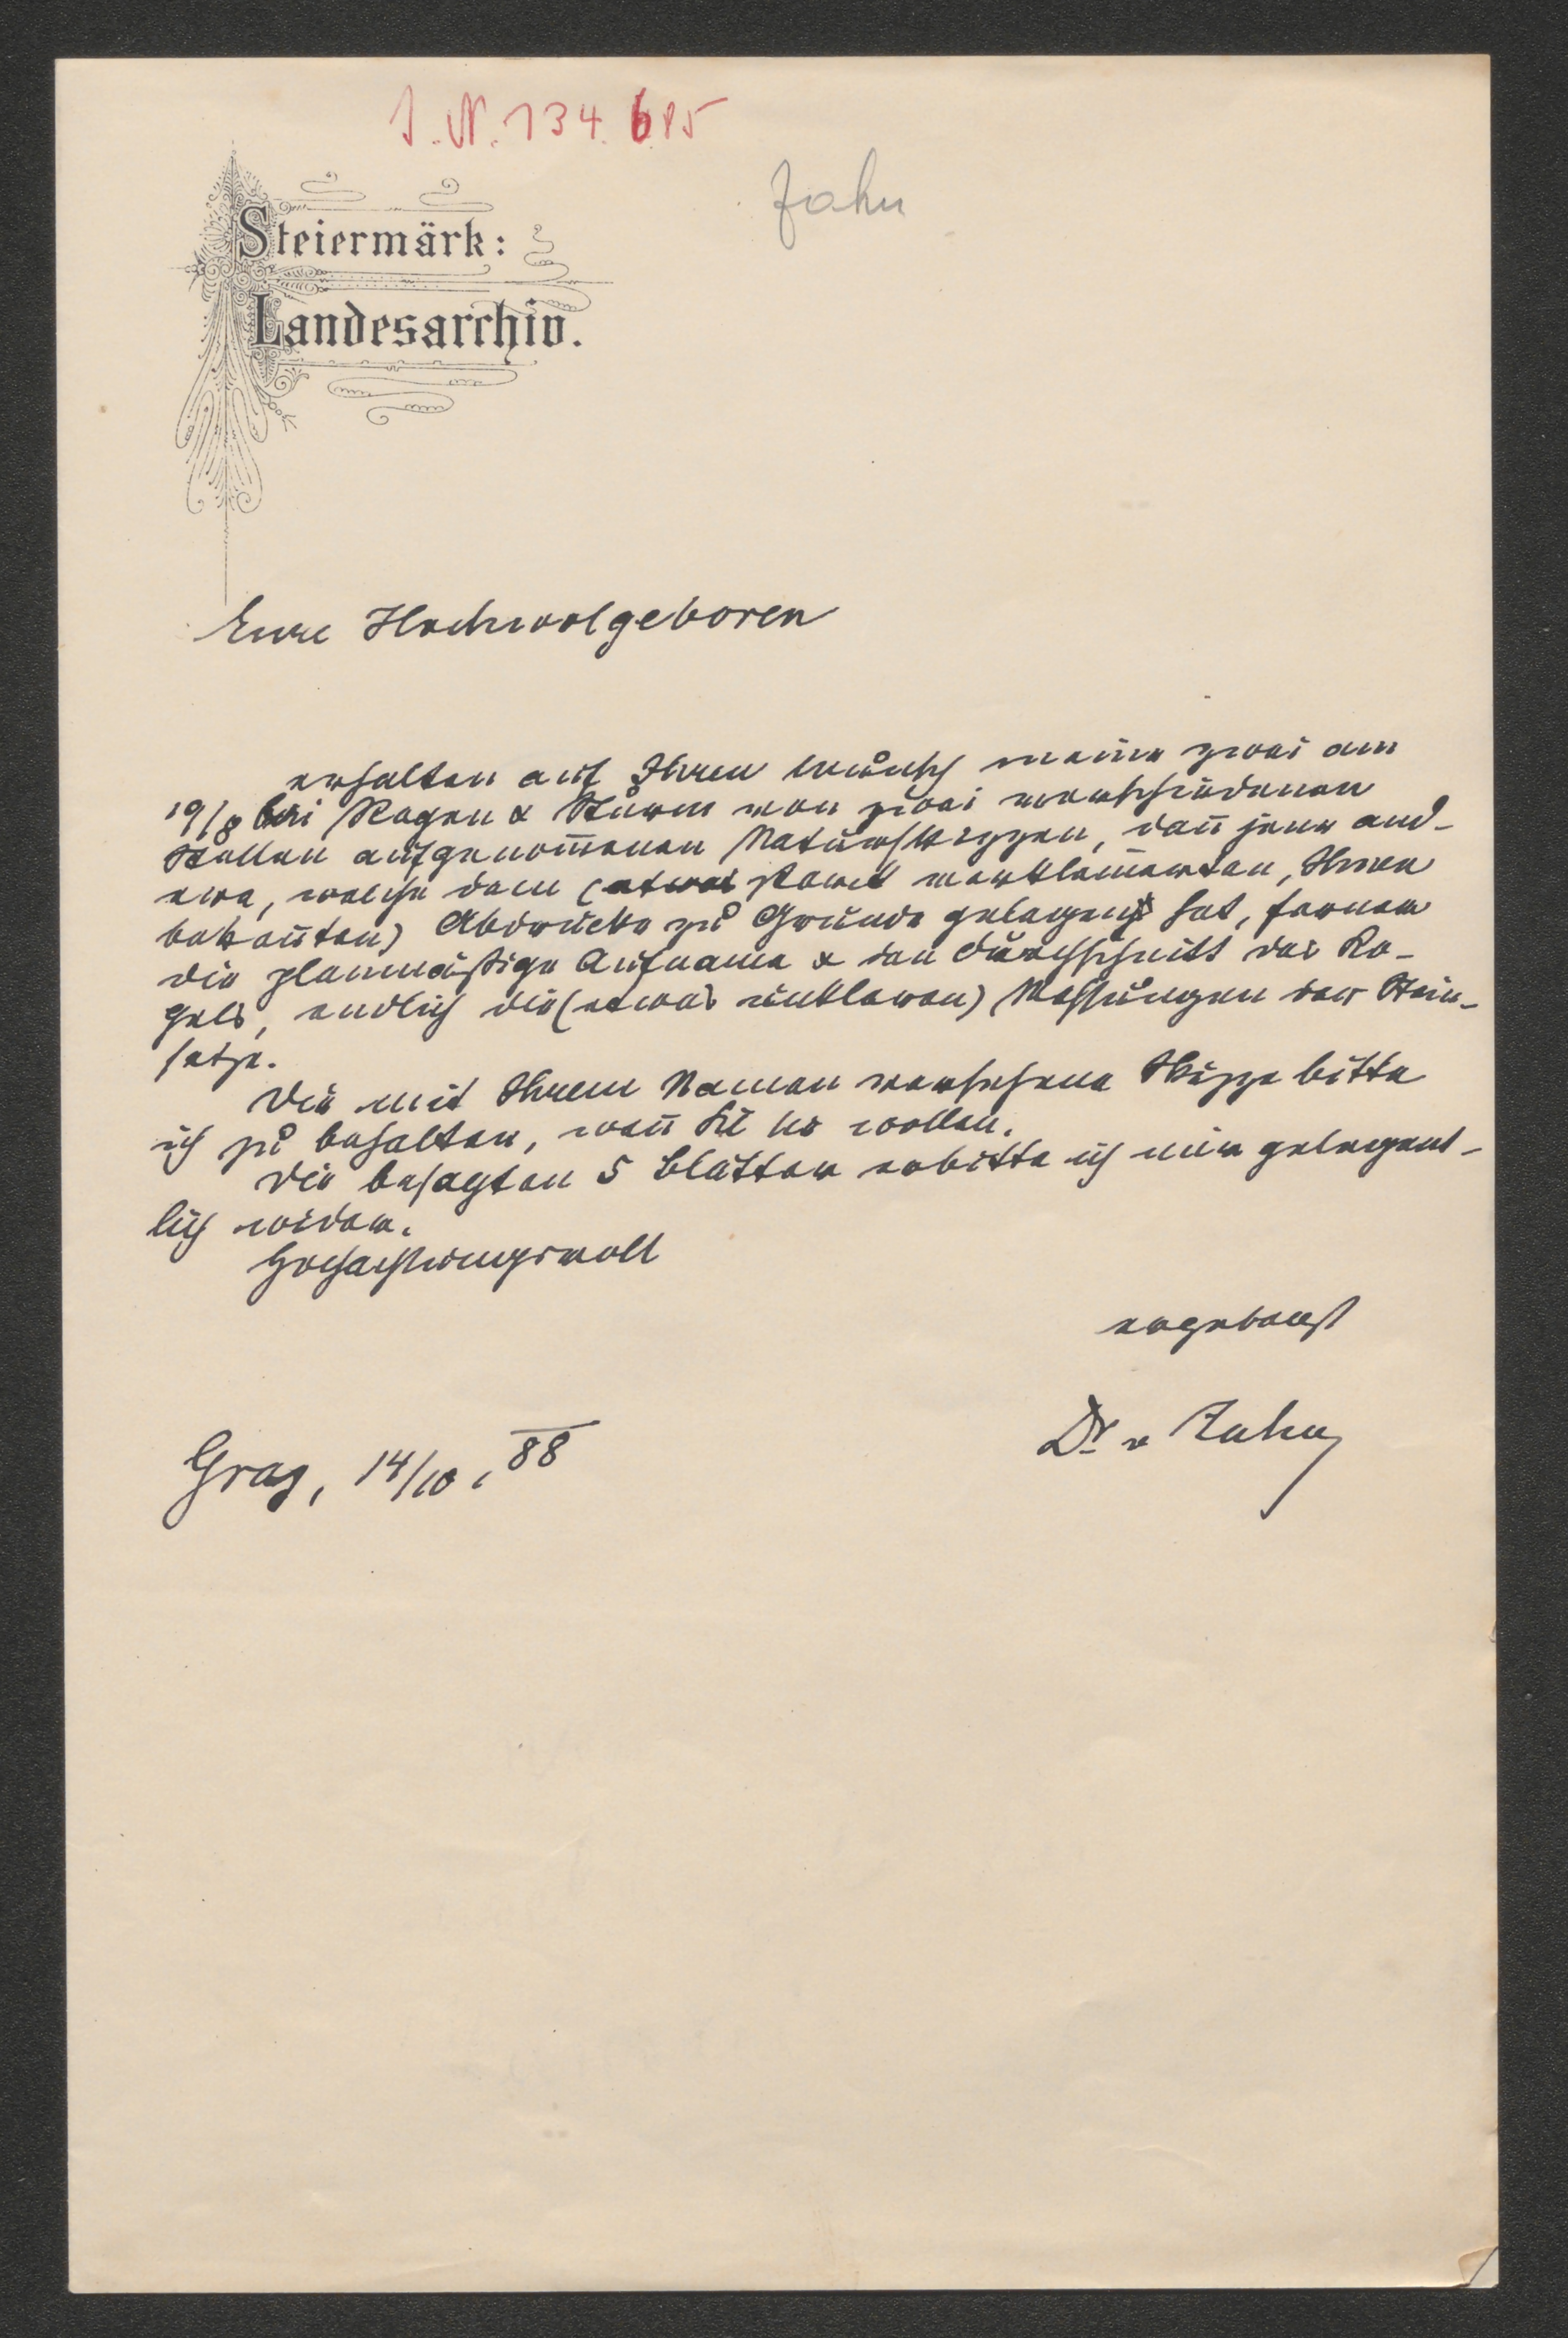 J. N. 134.685
Zahn
Steiermärk:
Landesarchiv.
Eure Hochwolgeboren
erhalten auf Ihren Wunsch meine zwei am
19/8 bei Regen & Sturm von zwei verschiedenen
Stellen aufgenom̅enen Naturskizzen, dan̅ jene and-
ere, welche dem (etwas stark verklei&#8203;nerten, Ihnen
bekan̅ten) Abdrucke zu Grunde gelegen hat, ferner
die planmäßige Aufname & den Durchschnitt des Ko-
gels, endlich die (etwas unklaren) Messungen der Stein-
sätze.
Die mit Ihrem Namen versehene Skizze bitte
ich zu behalten, wen̅ Sie es wollen.
Die besagten 5 Blätter erbitte ich mir gelegent-
lich wider.
Hochachtungsvoll
ergebenst
Dr v Zahn
Graz, 14/10, 88